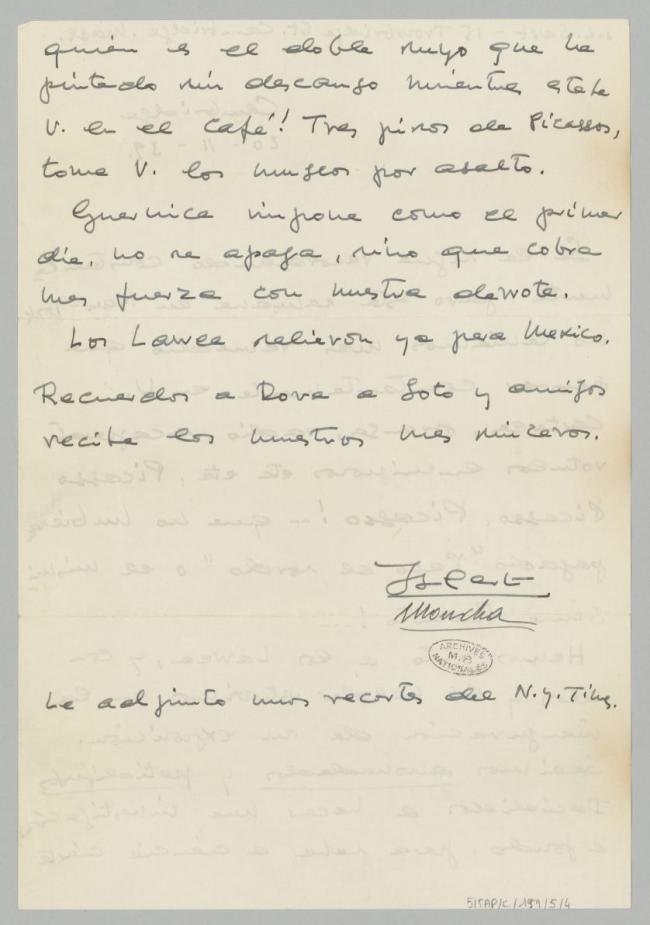 quien es el doble suyo que ha
pintado sin descanso mientras estaba
V. en el café! Tres pisos de Picassos,
toma V. los museos por asalto.
Guernica impone como el primer
dia. no se apaga, sino que cobra
mas fuerza con nuestra derrota.
Los Lawea salieron ya para Mexico.
Recuerdos a Dora a Soto y amigos
recibe los nuestros mas sinceros.
Moncha
ARCHIVES
NATIONALES
Le adjunto unos recortes del N.y. Times.
515AP/C/159/5/4